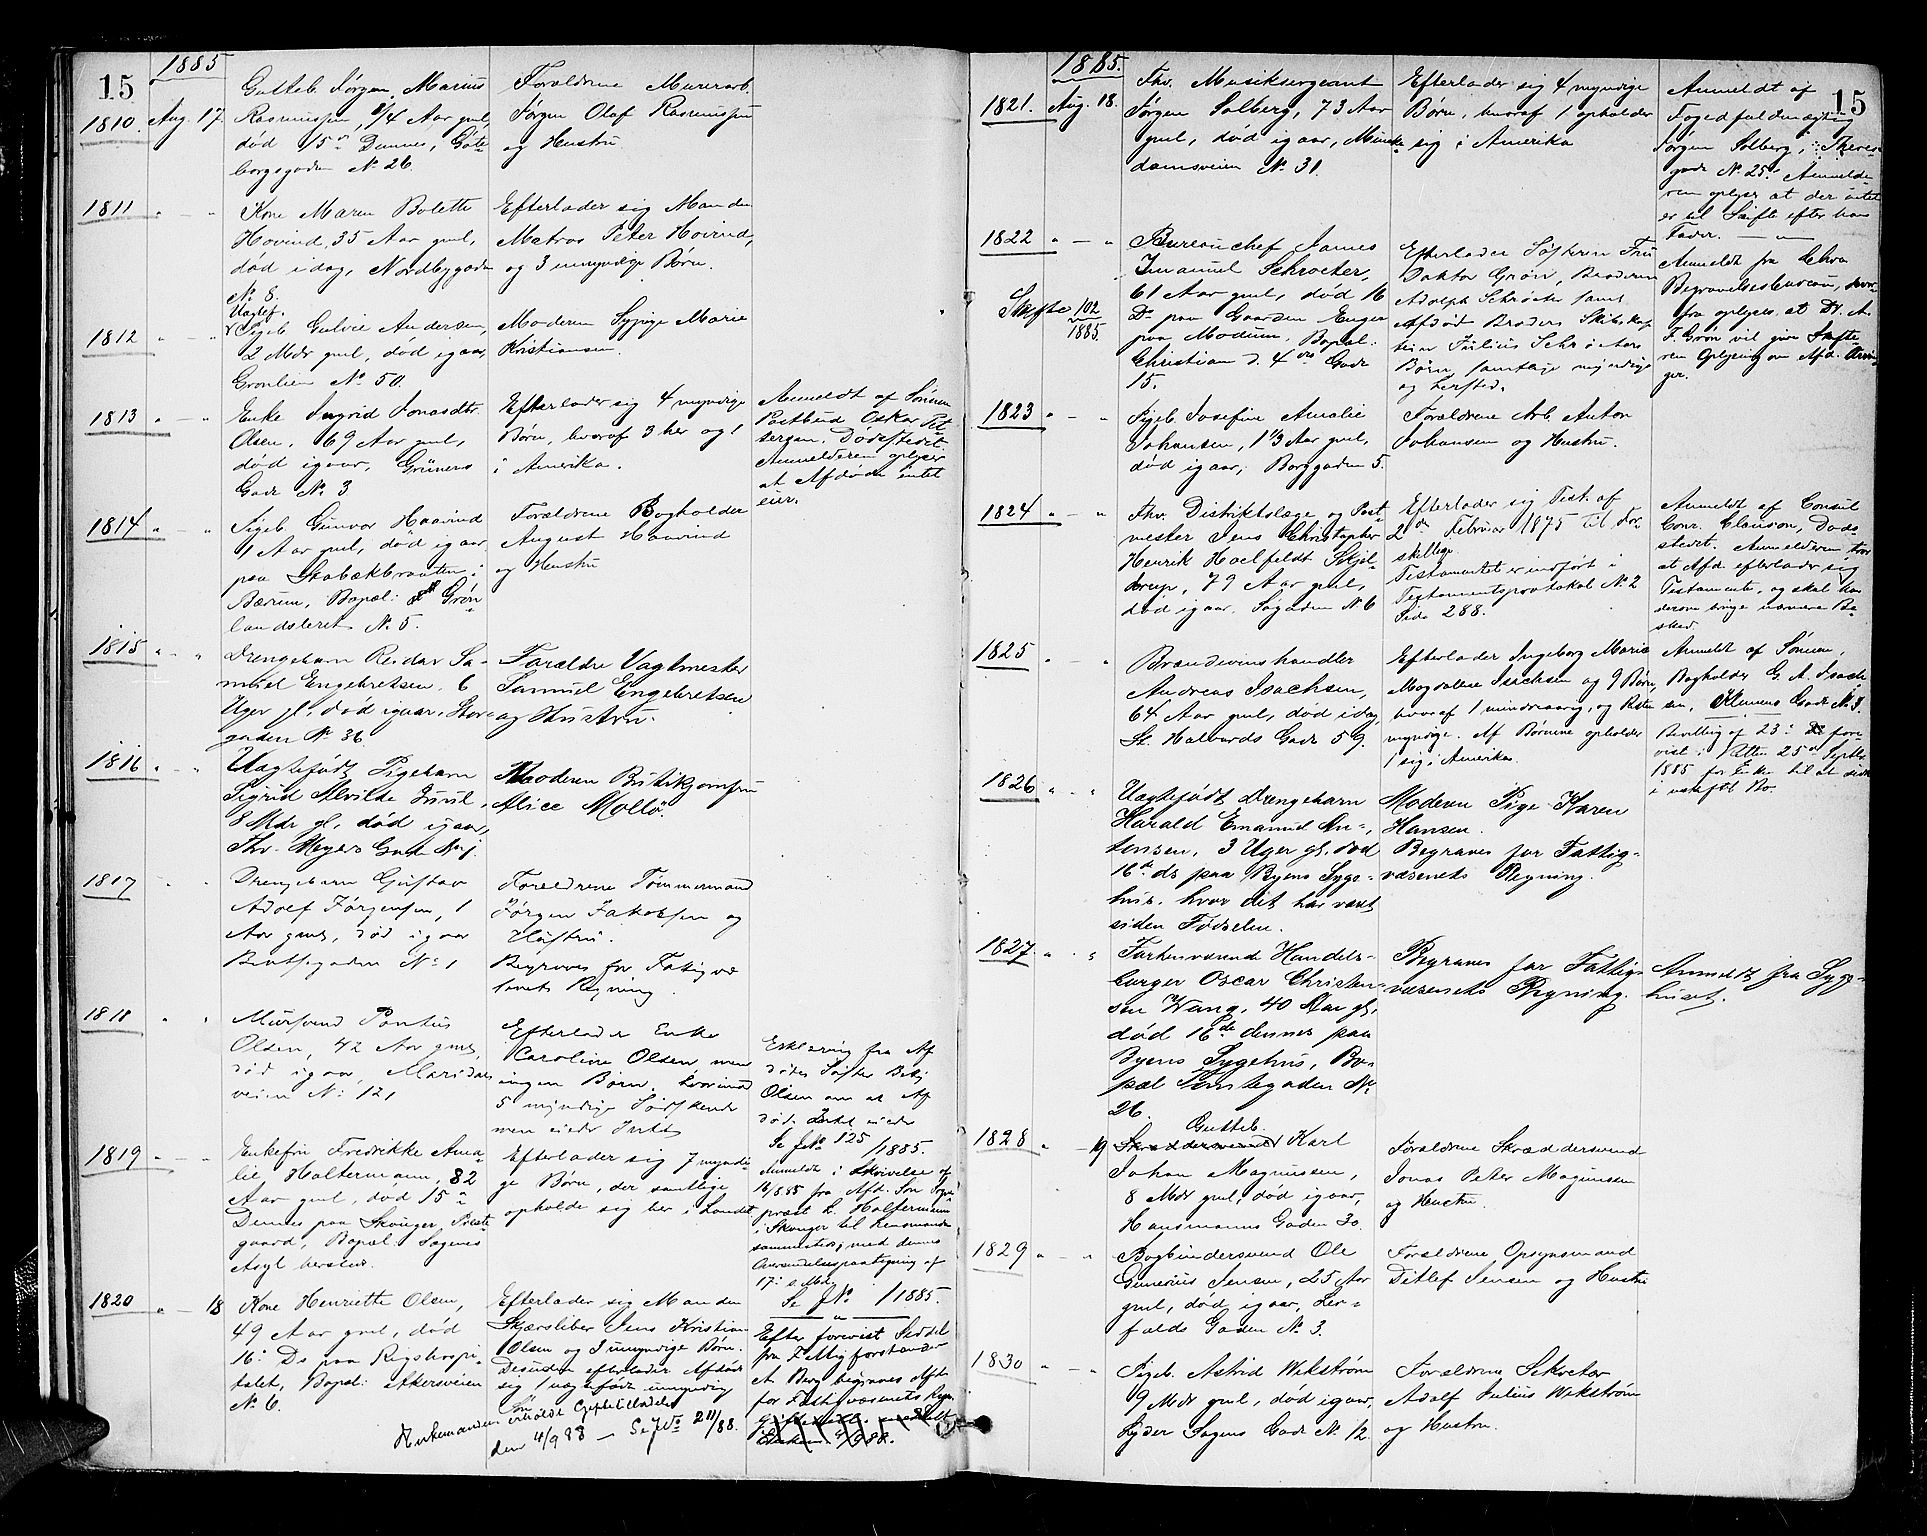 15
1885
1810. Aug. 17.
Gutteb. Jørgen Marius
Rasmussen, 1/4 Aar gml,
død 15de Dennes, Gøte-
borgsgaden No 26.
Forældrene Murerarb.
Jørgen Olaf Rasmussen
og Hustru
1811 " — "
Kone Maren Bolette
Hovind, 35 Aar gml,
død idag, Nordbygaden
No 8.
Efterlader sig Manden
Matros Peter Hovind,
og 3 umyndige Børn.
1812 " — "
Uægtef.
Pigeb. Gulvie Andersen,
2 Mdr gml, død igaar,
Grønlien No 50.
Moderen Sypige Marie
Kristiansen.
1813 " — "
Enke Ingrid Jonasdtr.
Olsen, 69 Aar gml,
død igaar, Grüners
Gade No 3
Efterlader sig 4 myndige
Børn, hvoraf 3 her og 1
i Amerika.
Anmeldt af Sønnen
Postbud Oskar Pet-
tersen, Dødsstedet.
Anmelderen oplyser
at Afdøde intet
eier.
1814 " — "
Pigeb. Gunvor Haavind
1 Aar gml, død igaar
paa Stabækbraaten i
Bærum, Bopæl: Grøn-
landsleret No 5.
Forældrene Bogholder
August Haavind
og Hustru
1815 " — "
Drengebarn Reidar Sa-
muel Engebretsen, 6
Uger gl., død igaar, Stor-
gaden No 36
Forældre Vagtmester
Samuel Engebretsen
og Hustru.
1816 " — "
Uægtefødt Pigebarn
Sigrid Alvilde Juul,
8 Mdr gl, død igaar,
Thv. Meyers Gade No 1.
Moderen Butikjomfru
Alice Mollø
1817 " "
Drengebarn Gustav
Adolf Jørgensen, 1
Aar gml, død igaar
Bentsegaden No 1
Forældrene Tømmermand
Jørgen Jakobsen og
Hustru.
Begraves for Fattigvæ-
senets Regning.
1818 " "
Mursvend Pontus
Olsen, 42 Aar gml,
død igaar, Maridals-
veien No 121
Efterlader Enke
Caroline Olsen, men
ingen Børn, hvorimod
5 myndige Søskende
men eiede Intet
Erklæring fra Af-
dødes Søster Betzy
Olsen om at Af-
død. Intet eiede
Se JNo 125/1885.
1819 " — "
Enkefru Fredrikke Ama-
lie Haltermann, 82
Aar gml, død 15de
Dennes paa Skonger Præste-
gaard, Bopæl: Sagenes
Asyl hersteds.
Efterlader sig 7 myndi-
ge Børn, der samtlige
opholde sig her i Landet
Anmeldt i Skrivelse af
16/8 85 fra Afd. Søn Sogne-
præst L. Haltermann
i Skonger til Lensmanden
sammesteds, med dennes
Anmeldelsespaategning af
17. s Md.
Se JNo /1885.
1820 " — 18
Kone Henriette Olsen,
49 Aar gml, død
16. Ds paa Rigshospi-
talet, Bopæl: Akersveien
No 6.
Efterlader sig Manden
Skjærsliber Jens Kristian
Olsen og 3 umyndige Børn.
Desuden efterlader Afdøde
sig 1 uægtefødt umyndig
Søn
Enkemanden erholdt Giftetilladelse
den 4/9 88 — Se JNo 211/88.
Efter forevist Seddel
fra Fattigforstander
A. Berg begraves Afd.
for Fattigvæsenets Regn.
15
1885.
1821. Aug. 18.
Fhv. Musiksergeant
Jørgen Solberg, 73 Aar
gml, død igaar, Munke-
damsveien No 31.
Efterlader sig 4 myndige
Børn, hvoraf 1 opholder
sig i Amerika
Anmeldt af
Fogedfuldmægtig
Jørgen Solberg, Theres-
gade No 25. Anmelde-
ren oplyser at der intet
er til Skifte efter hans
Fader.
1822 " — "
Skifte 102/1885.
Bureauchef James
Imanuel Schrøeter,
61 Aar gml, død 16
Ds paa Gaarden Enger
paa Modum, Bopæl:
Christian d. 4des Gade
15.
Efterlader Søsteren Fru
Doktor Grøn, Broderen
Adolph Schrøeter samt
Afdød Broders Skibskap-
tein Julius Schrøeters
Børn, samtlige myndige
og hersted.
Anmeldt fra Lehn
Begravelsesbureau, hvor-
fra oplyses, at Dr. A.
F. Grøn vil give Skifte-
ren Oplysning om Afd. Arvin-
ger.
1823 " — "
Pigeb. Josefine Amalie
Johansen, 1 1/3 Aar gml,
død igaar, Borggaden 5.
Forældrene Arb. Anton
Johansen og Hustru.
1824 " — "
Fhv. Distriktslæge og Post-
mester Jens Christopher
Henrik Hoelfeldt Skjel-
derup, 79 Aar gml,
død igaar, Søgaden No 6
Efterlader sig Test. af
2den Februar 1875 til For-
skjellige.
Testamentet er indført i
Testamentsprotokol No 2
Side 288.
Anmeldt af Consul
Conr. Clauson, Døds-
stedet. Anmelderen tror
at Afd. efterlader sig
Testamente, og skal han
derom bringe nærmere Be-
sked.
1825 " "
Brændevinshandler
Andreas Isachsen,
64 Aar gml, død idag,
St. Halvards Gade 59.
Efterlader Ingeborg Marie
Magdalene Isachsen og 9 Børn,
hvoraf 1 mindreaarig, og Resten
myndige. Af Børnene opholder
1 sig i Amerika.
Anmeldt af Sønnen,
Bogholder G. A. Isach-
sen, Klemens Gade No 3.
Bevilling af 23. Ds fore-
vist i Retten 25de Septbr
1885 for Enken til at sidde
i uskiftet Bo.
1826 " "
Uægtefødt Drengebarn
Harald Emanuel An-
tonsen, 3 Uger gl. død
16de ds paa Byens Syge-
hus, hvor det har været
siden Fødselen.
Moderen Pige Karen
Hansen.
Begraves for Fattig-
væsenets Regning.
1827. " "
Forhenværende Handels-
borger Oscar Christen-
sen Wang, 40 Aar gl,
død 16de dennes paa
Byens Sygehus, Bo-
pæl Tomtegaden No
26.
Begraves for Fattig-
væsenets Regning.
Anmeldt fra Syge-
huset.
1828 " — 19
Gutteb.
Skræddersvend Karl
Johan Magnussen,
8 Mdr gml, død igaar,
Hausmanns Gaden 30.
Forældrene Skræddersvend
Jonas Peter Magnussen
og Hustru.
1829 " — "
Bogbindersvend Ole
Gunerius Jensen, 25 Aar
gml, død igaar, Ler-
folds Gaden No 3.
Forældrene Opsynsmand
Ditlef Jensen og Hustru
1830 " — "
Pigeb. Astrid Wekstrøm
9 Mdr gml, død igaar,
Fyder Sagens Gade No 12.
Forældrene Sekretær
Adolf Julius Wekstrøm
og Hustru.